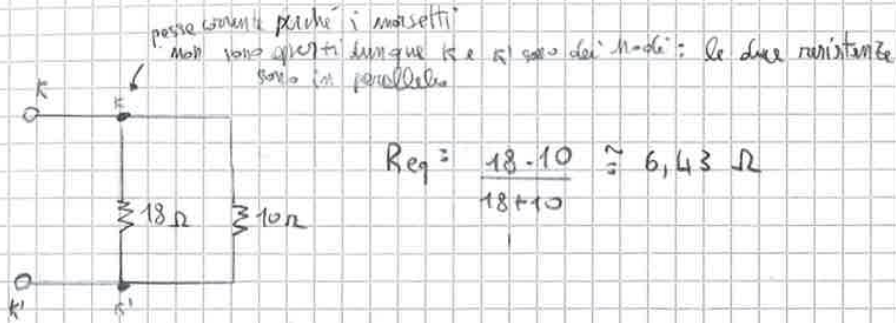 passa corrente perché i morsetti
non sono aperti dunque K e K' sono dei nodi: le due resistenze
sono in parallelo
K
K
Req = 18 · 10 / 18 + 10 ≅ 6,43 Ω
18 Ω
10 Ω
K'
K'